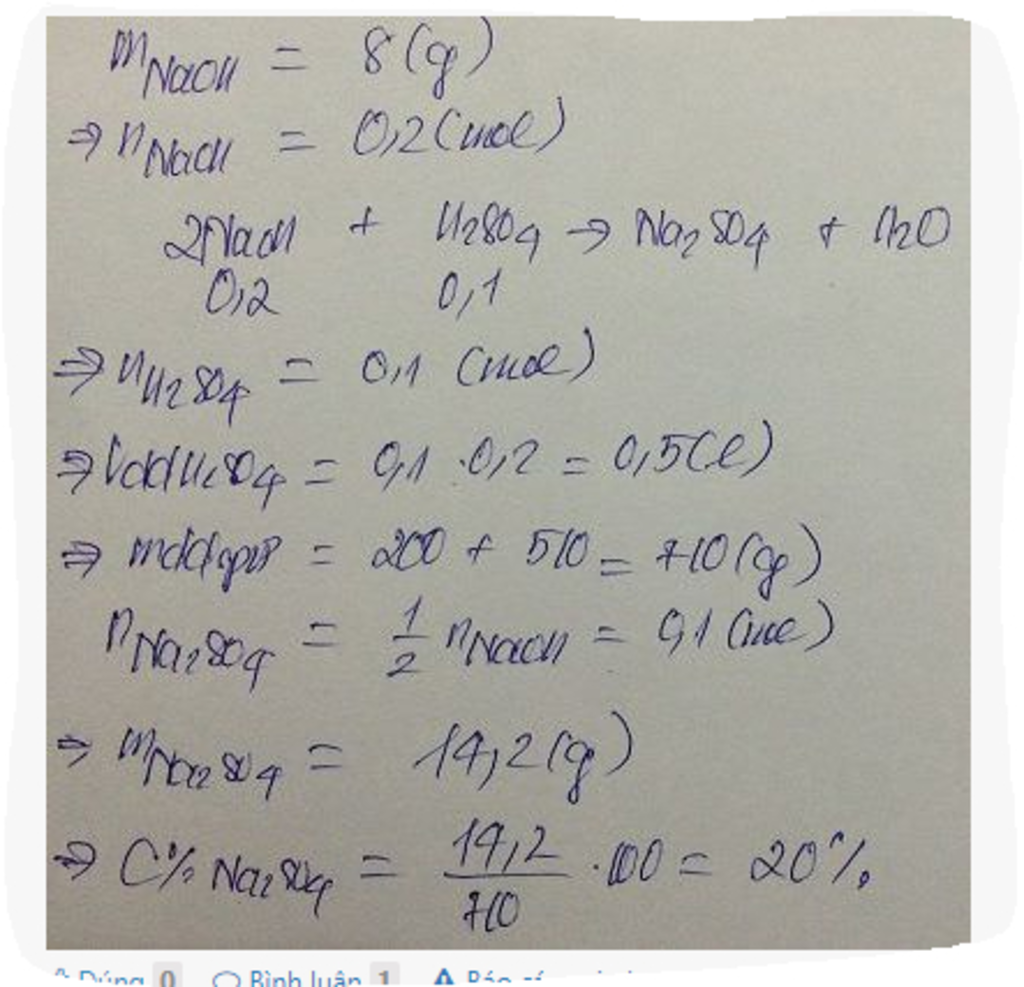 mNaOH = 8(g)
⇒ nNaOH = 0,2(mol)
2NaOH + H2SO4 → Na2SO4 + H2O
0,2 0,1
⇒ nH2SO4 = 0,1 (mol)
⇒ VddH2SO4 = 0,1 . 0,2 = 0,5(l)
⇒ mddspư = 200 + 510 = 710(g)
nNa2SO4 = 1/2 nNaOH = 0,1 (mol)
⇒ mNa2SO4 = 14,2(g)
⇒ C% Na2SO4 = 14,2/710 . 100 = 20%
Đúng 0 Bình luận 1